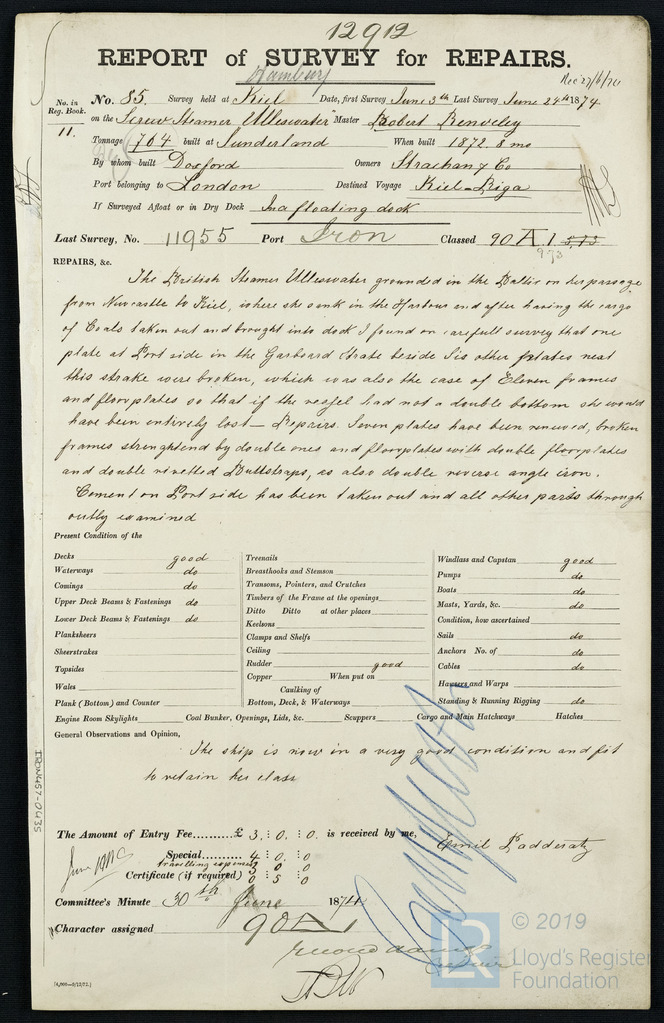 12912
REPORT of SURVEY for REPAIRS.
Hamburg
Rec 27/6/74
No. in Reg. Book. No. 85. Survey held at Kiel Date, first Survey June 3th Last Survey June 24th 1874
11. on the Screw Steamer Ulleswater Master Robert
Tonnage 704 built at Sunderland When built 1872. 8 mo
By whom built Doxford Owners Strachan & Co
Port belonging to London Destined Voyage Kiel-Riga
If Surveyed Afloat or in Dry Dock In a floating dock
Last Survey, No. 11955 Port Iron Classed 90 A.1
REPAIRS, &c.
The British Steamer Ulleswater grounded in the Baltic on her passage
from Newcastle to Kiel, where she sunk in the Harbour and after having the cargo
of Coals taken out and brought into dock I found on carefull survey that one
plate at Port side in the Garboard Strake beside Six other plates next
this strake were broken, which was also the case of Eleven frames
and floorplates so that if the vessel had not a double bottom she would
have been entirely lost— Repairs. Seven plates have been renewed, broken
frames strenghtend by double ones and floorplates with double floorplates
and double rivetted Buttstraps, as also double reverse angle iron.
Cement on Port side has been taken out and all other parts through
outly examined
Present Condition of the
Decks good
Waterways do
Comings do
Upper Deck Beams & Fastenings do
Lower Deck Beams & Fastenings do
Planksheers
Sheerstrakes
Topsides
Wales
Plank (Bottom) and Counter
Treenails
Breasthooks and Stemson
Transoms, Pointers, and Crutches
Timbers of the Frame at the openings
Ditto Ditto at other places
Keelsons
Clamps and Shelfs
Ceiling
Rudder good
Copper When put on
Caulking of
Bottom, Deck, & Waterways
Windlass and Capstan good
Pumps do
Boats do
Masts, Yards, &c. do
Condition, how ascertained
Sails do
Anchors No. of do
Cables do
Hawsers and Warps
Standing & Running Rigging do
Engine Room Skylights Coal Bunker, Openings, Lids, &c. Scuppers Cargo and Main Hatchways Hatches
General Observations and Opinion,
The ship is now in a very good condition and fit
to retain her class
The Amount of Entry Fee.......... £ 3 : 0 : 0. is received by me,
Emil Padderatz
Special.......... 4 : 0 : 0
travelling expenses 3 0 0
Certificate (if required) 0 5 0
Committee's Minute 30th June 1874
Character assigned 90 A
[4,000—3/12/72.]
IRON457-0435
LR
© 2019
Lloyd's Register
Foundation